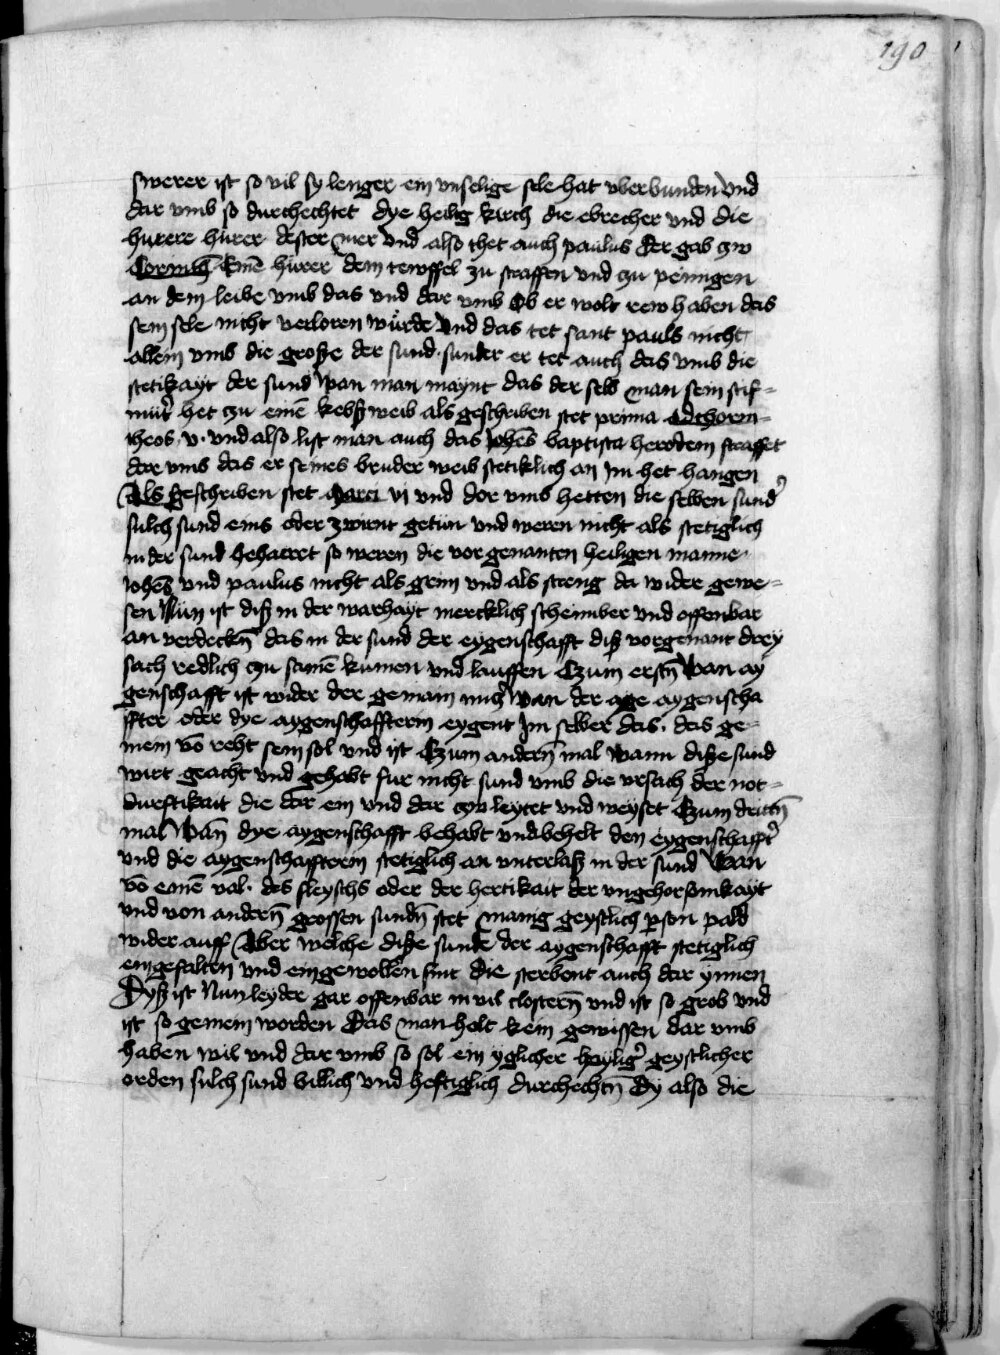 190
swerer ist so vil sy lenger ein vnselige sele hat vberbunden Vnd
dar vmb so durchechtet dye heilig kirch die ebrecher vnd die
hurere hurer dester mer Vnd also thet auch paulus der gab zw
Corinth Einē hurer dem tewffel zu straffen vnd zu peinigen
an dem leibe vmb das vnd dar vmb Ob er wolt rew haben das
sein sele nicht verloren würde Vnd das tet sant pauls nicht
allein vmb die große der sund · sunder er tet auch das vmb die
stetikayt der sund Wan man maynt das der selb man sein stif=
mut̄ het zu einē kebßweib als geschriben stet prima Adchorin=
theos · v · vnd also list man auch das Joh̄es baptista herodem straffet
dar vmb das er seines bruder weib stetiklich an im het hangen
Als geschriben stet Marci vi vnd dor vmb hetten die selben sund̾
sulch sund eins oder zwirnt getun vnd weren nicht als stetiglich
in der sund beharret so weren die vorgenanten heiligen manne
Joh̄es vnd paulus nicht als grim vnd als streng dar wider gewe=
sen Nün ist diß in der warhayt mercklich scheinber vnd offenbar
an verdeckn̄ das in der sund der eygenschafft diß vorgenant drey
sach redlich zu samē kumen vnd lauffen Czum erstn̄ Wan ay
genschafft ist wider der gemain nucz Wan der aygenscha
ffter oder dye aygenschaffterin eygent Im selber das · das ge=
mein vō reht sein sol vnd ist Czum andern̄ mal Wann diße sund
wirt geacht vnd gehabt fur nicht sund vmb die vrsach der not=
durftikait die dar ein vnd dar zw leytet vnd weyset Czum drittn̄
mal Wan̄ dye aygenschafft behabt vnd behelt den eygenschafft̾
vnd die aygenschaffterin stetiglich an vnterlaß in der sund Wan
vō einē val · des fleyschs oder der hertikait der vngehorsmkayt
vnd von andern̄ grossen sundn̄ stet manig geystlich p̱son pald
wider auff Aber welche diße sunde der aygenschafft stetiglich
eingefalten vnd eingewollen sint die sterbent auch dar ynnen
Dyß ist Nun leyder gar offenbar in vil clostern̄ vnd ist so grob vnd
ist so gemein worden Das man holt kein gewissen dar vmb
haben wil vnd dar vmb so sol ein yglicher heylig̾ geystlicher
orden sulch sund billich vnd heftiglich durchechtn̄ Dy also die